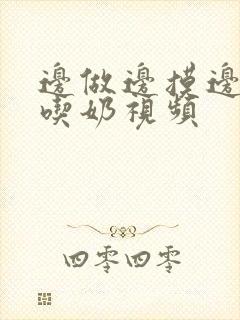 邊做邊摸邊
喫奶視頻
四零四零